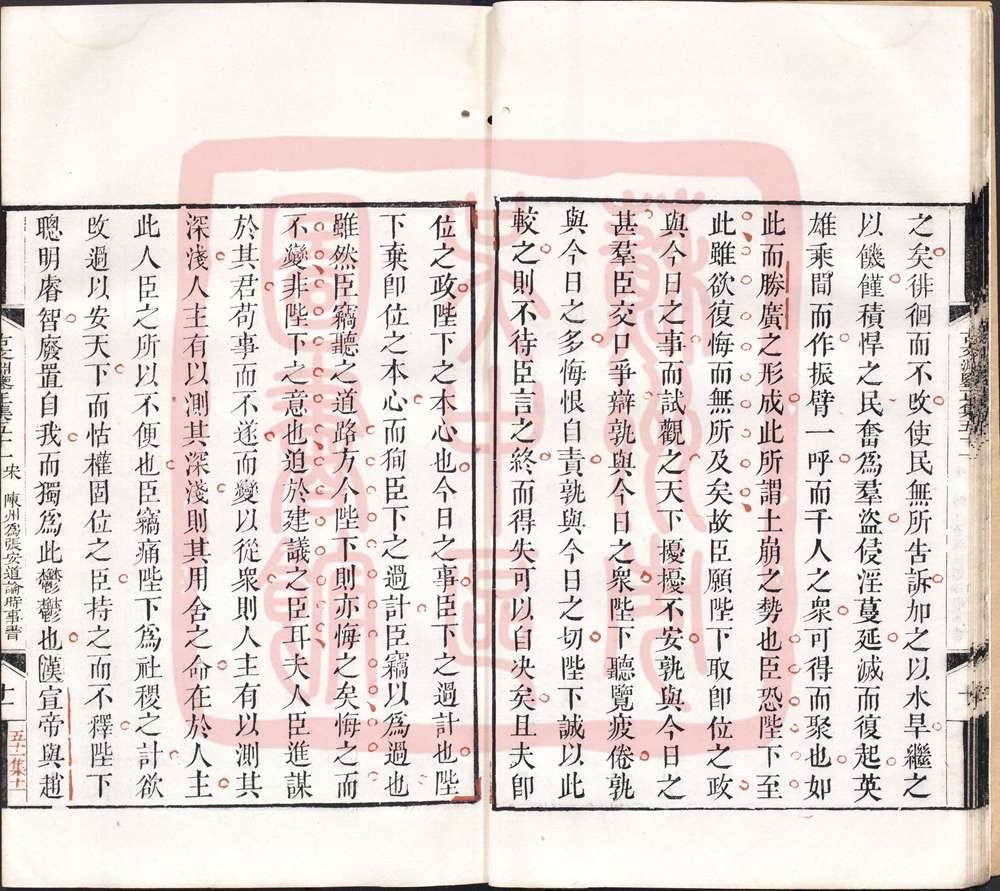 之矣徘徊而不改使民無所告訴加之以水旱繼之
以饑饉積悍之民奮爲羣盜侵淫蔓延滅而復起英
雄乘間而作振臂一呼而千人之衆可得而聚也如
此而勝廣之形成此所謂土崩之勢也臣恐陛下至
此雖欲復悔而無所及矣故臣願陛下取卽位之政
與今日之事而試觀之天下擾擾不安孰與今日之
甚羣臣交口爭辯孰與今日之衆陛下聽覽疲倦孰
與今日之多悔恨自責孰與今日之切陛下誠以此
較之則不待臣言之終而得失可以自決矣且夫卽
位之政陛下之本心也今日之事臣下之過計也陛
下棄卽位之本心而狥臣下之過計臣竊以為過也
雖然臣竊聽之道路方今陛下則亦悔之矣悔之而
不變非陛下之意也迫於建議之臣耳夫人臣進謀
於其君苟事而不遂而變以從衆則人主有以測其
深淺人主有以測其深淺則其用舍之命在於人主
此人臣之所以不便也臣竊痛陛下爲社稷之計欲
改過以安天下而怙權固位之臣持之而不釋陛下
聰明睿智廢置自我而獨爲此鬱鬱也漢宣帝與趙
宋 陳州爲張安道論時事書
十一
五十二集十